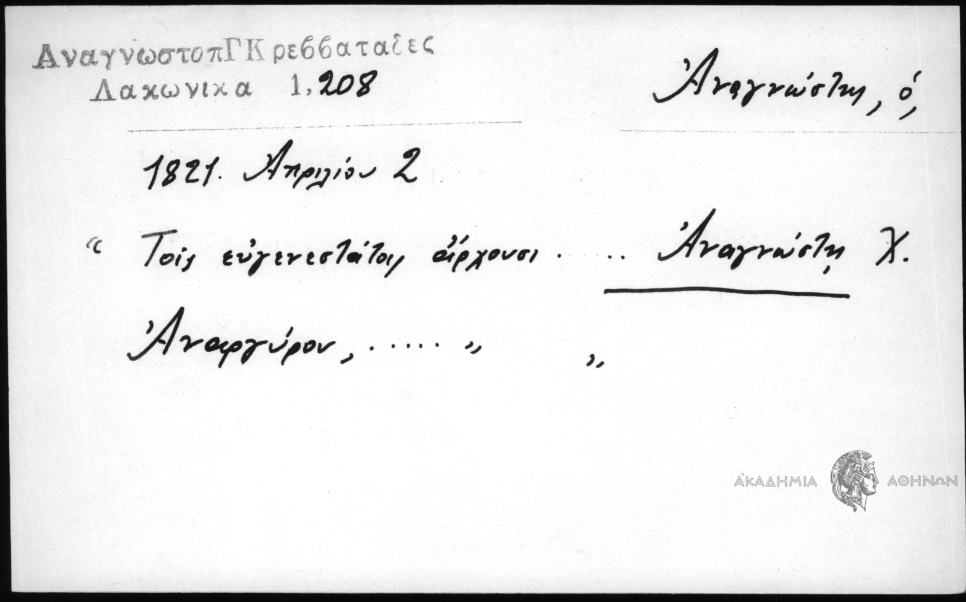 ΑναγνωστοπΓΚρεββαταδες
Λακωνικα 1,208
Ἀναγνώστης, ὁ,
1821. Ἀπριλίου 2
“ Τοῖς εὐγενεστάτοις ἄρχουσι . . . . . Ἀναγνώστῃ Χ.
Ἀναργύρου, . . . . . „ „
ΑΚΑΔΗΜΙΑ ΑΘΗΝΩΝ